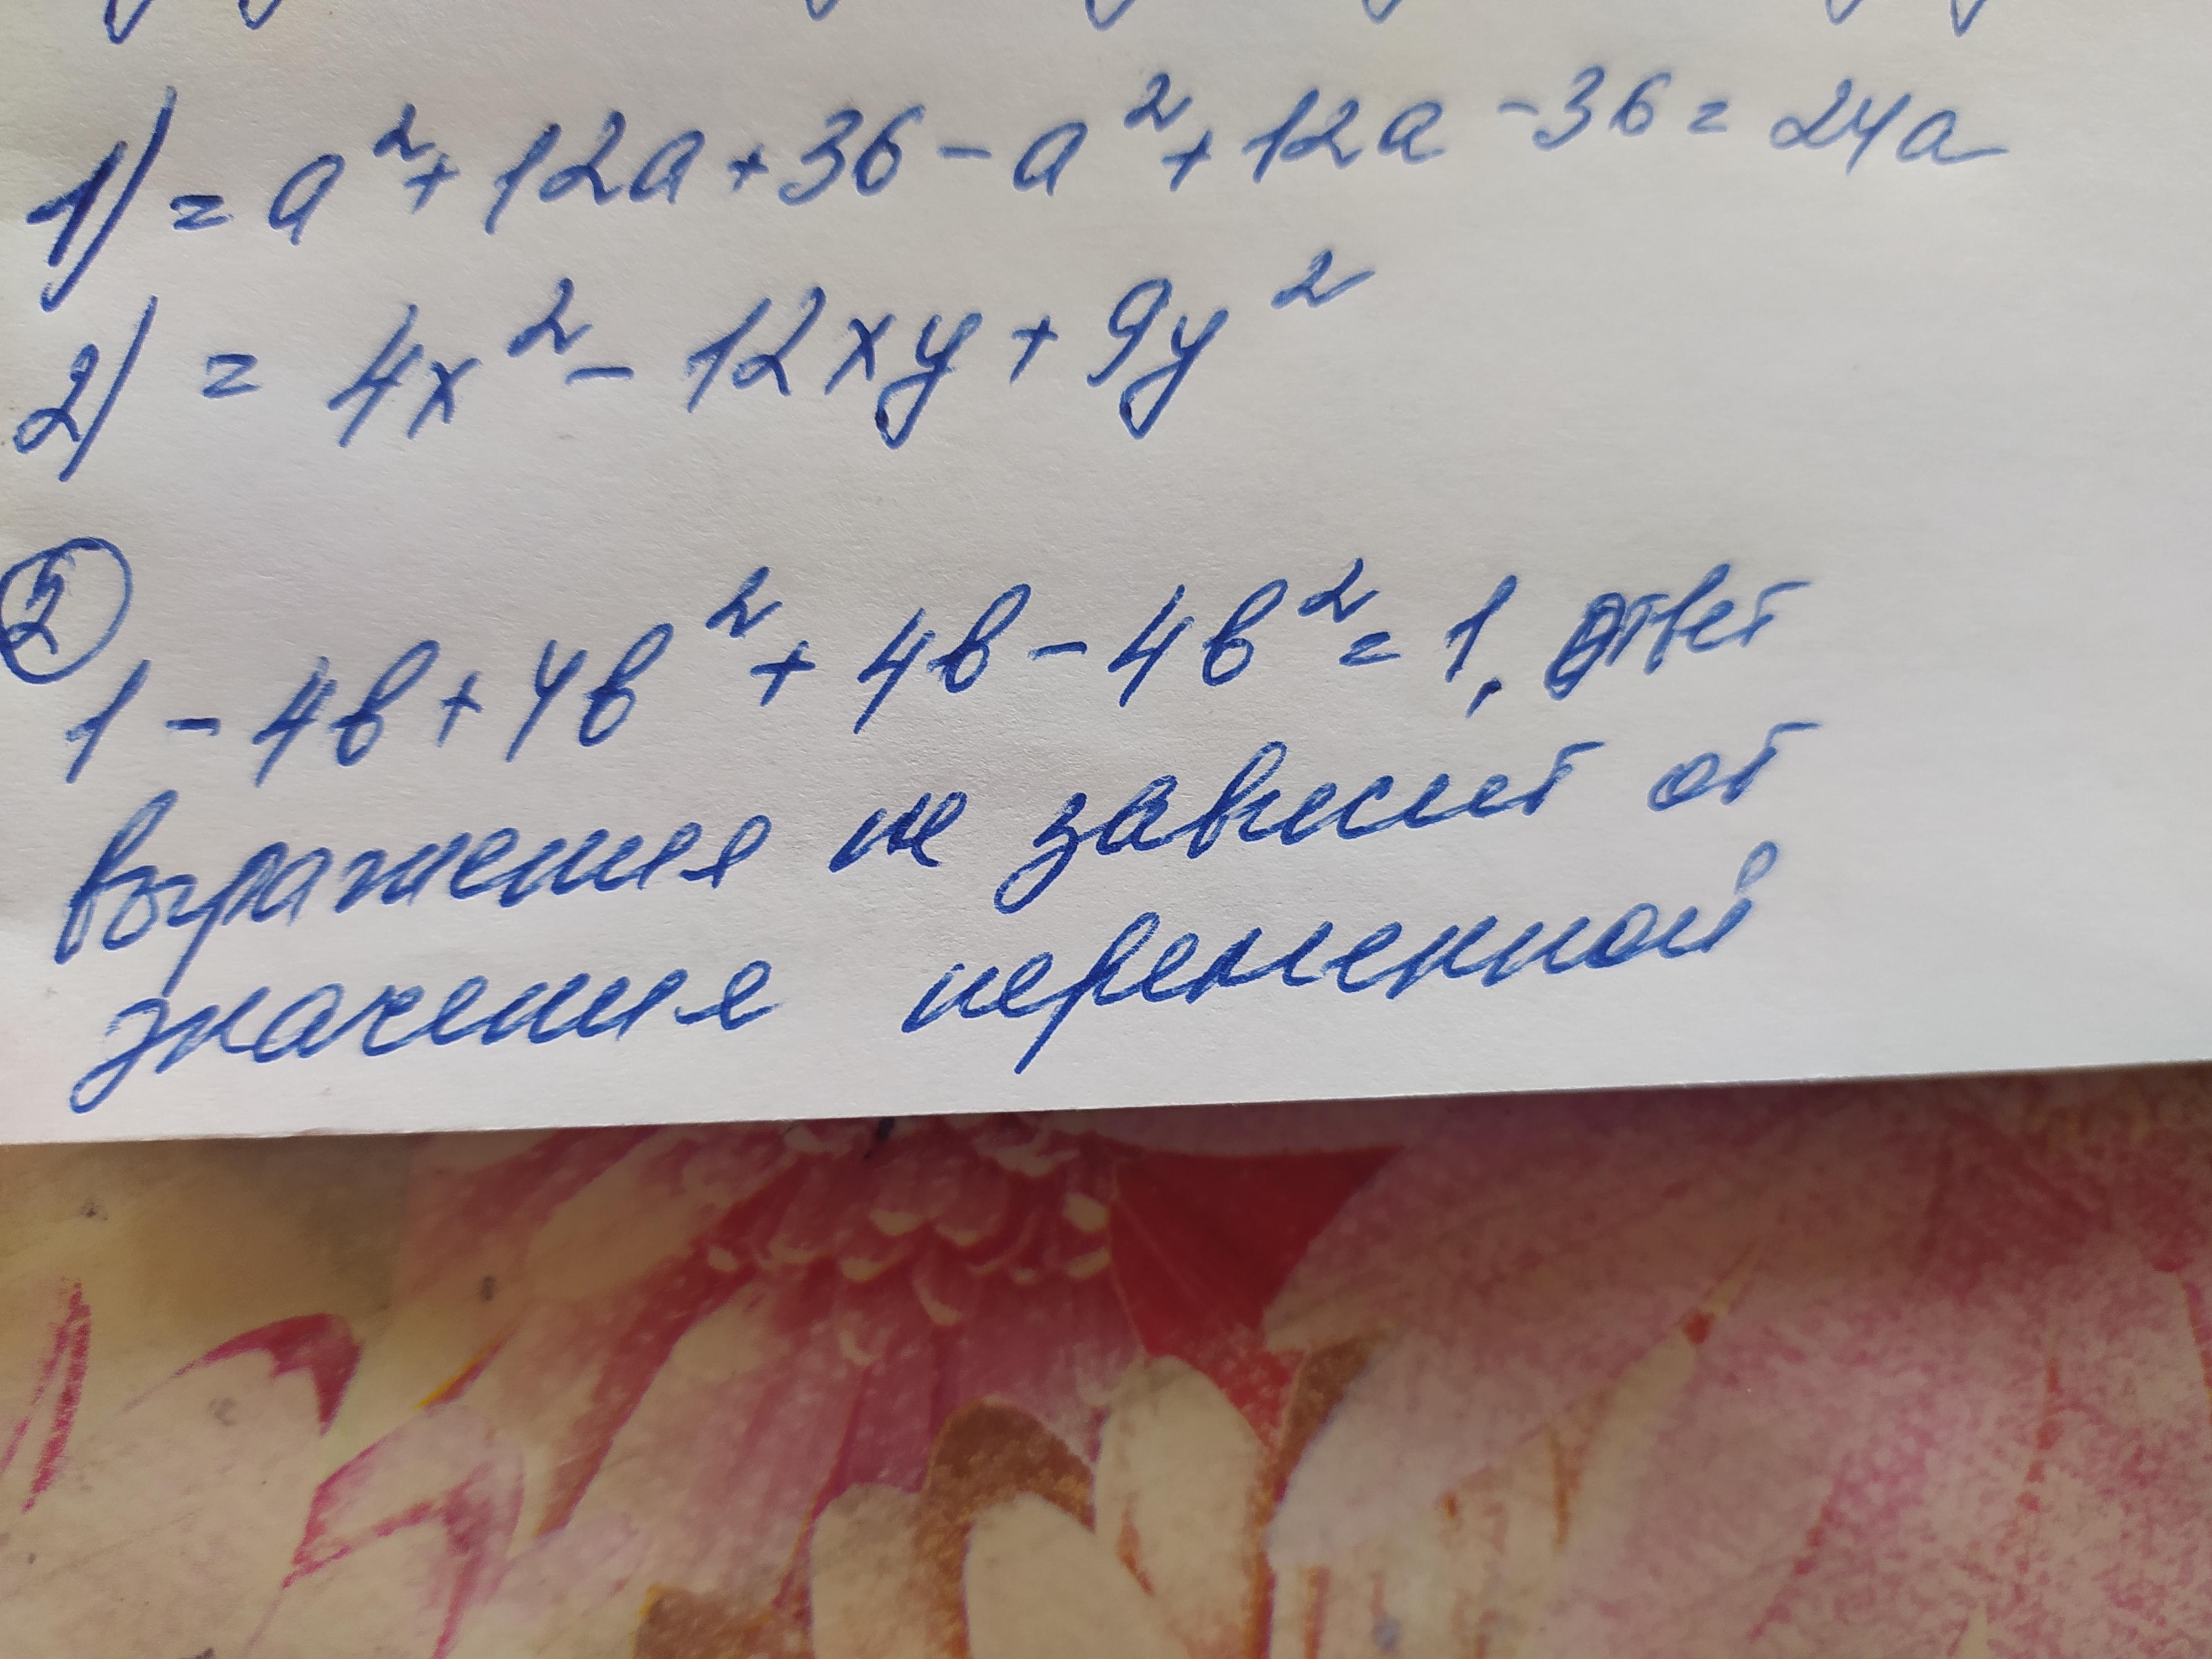 1) = a² + 12a + 36 - a² + 12a - 36 = 24a
2) = 4x² - 12xy + 9y²
5
1 - 4b + 4b² + 4b - 4b² = 1, Ответ
выражения не зависит от
значения переменной